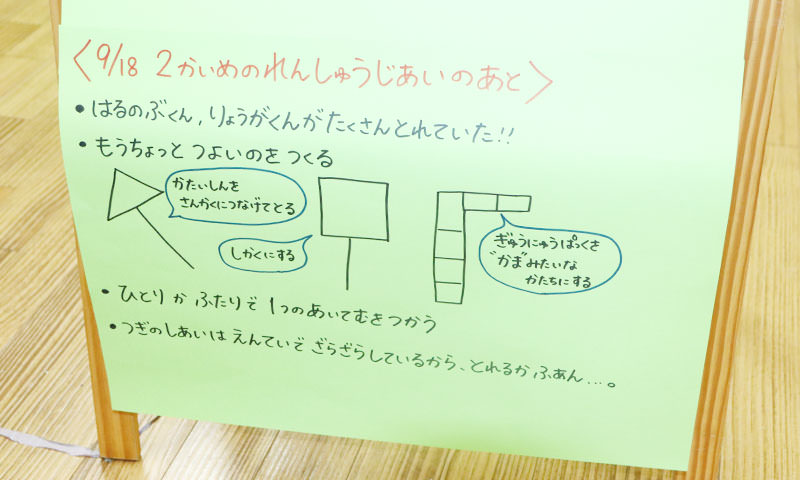 〈9/18 2かいめのれんしゅうじあいのあと〉
・はるのぶくん,りょうがくんがたくさんとれていた!!
・もうちょっと つよいのを つくる
かたいしんを
さんかくにつなげてとる
しかくにする
ぎゅうにゅうぱっくを
"かま"みたいな
かたちにする
・ひとりか ふたりで 1つのあいてむをつかう
・つぎのしあいは えんていで ざらざらしているから、とれるか ふあん…。